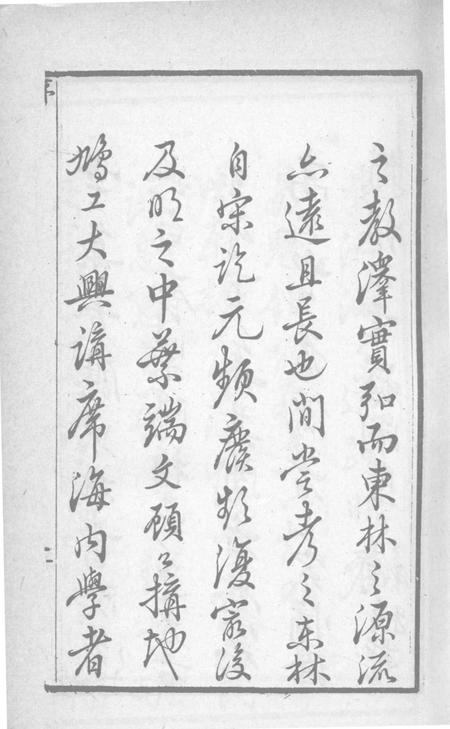 之教澤實弘而東林之源流
亦遠且長也間嘗考之東林
自宋訖元頻廢頻復寖後
及明之中葉端文顧公搆地
鳩工大興講席海内學者